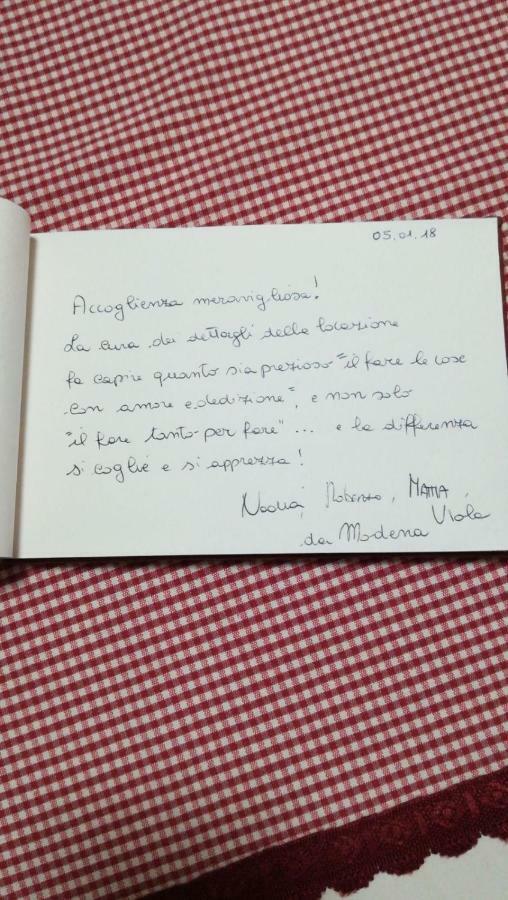 05.01.18
Accoglienza meravigliosa!
La cura dei dettagli della locazione
fa capire quanto sia prezioso "il fare le cose
con amore e dedizione", e non solo
"il fare tanto per fare"... e la differenza
si coglie e si apprezza!
Nadia, MATTIA,
Viola
da Modena